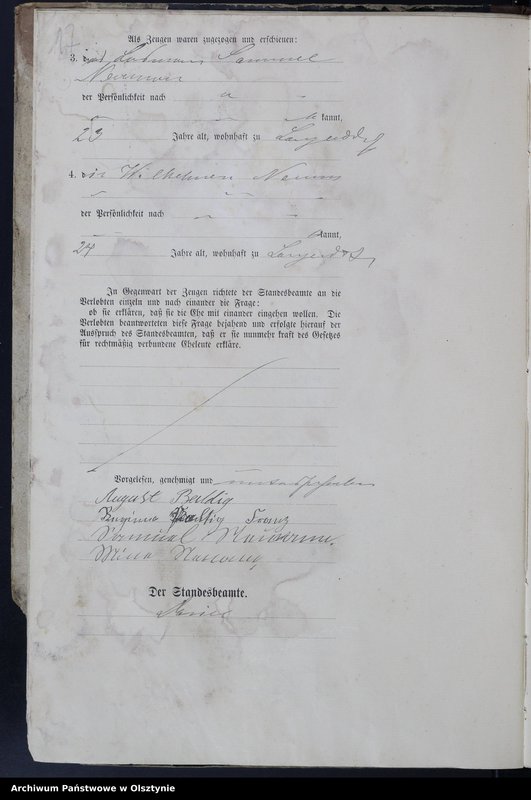 17
Als Zeugen waren zugezogen und erschienen:
3. Samuel
Neumann
der Persönlichkeit nach
kannt,
23 Jahre alt, wohnhaft zu Langendorf
4. die Wilhelmine
der Persönlichkeit nach
kannt,
24 Jahre alt, wohnhaft zu Langendorf
In Gegenwart der Zeugen richtete der Standesbeamte an die
Verlobten einzeln und nach einander die Frage:
ob sie erklären, daß sie die Ehe mit einander eingehen wollen. Die
Verlobten beantworteten diese Frage bejahend und erfolgte hierauf der
Ausspruch des Standesbeamten, daß er sie nunmehr kraft des Gesetzes
für rechtmäßig verbundene Eheleute erkläre.
Vorgelesen, genehmigt und unterschrieben
August Baldig
Regina Franz
Samuel Neumann.
Der Standesbeamte.
Archiwum Państwowe w Olsztynie